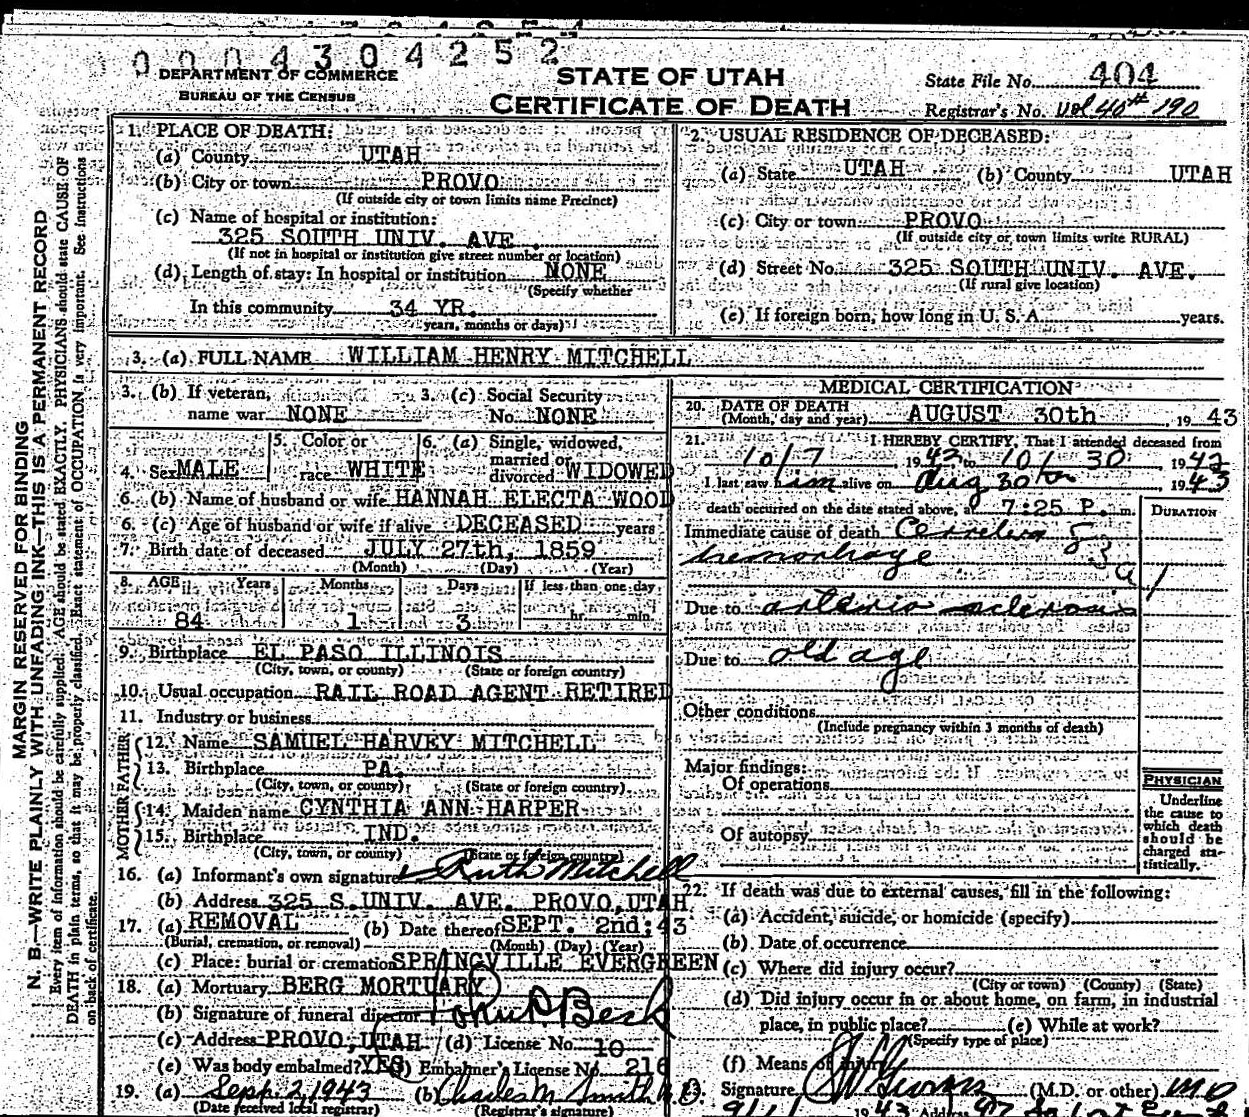 0004304252
DEPARTMENT OF COMMERCE
BUREAU OF THE CENSUS
STATE OF UTAH
CERTIFICATE OF DEATH
State File No. 404
Registrar's No. Vol 40# 190
MARGIN RESERVED FOR BINDING
N. B.—WRITE PLAINLY WITH UNFADING INK—THIS IS A PERMANENT RECORD
Every item of information should be carefully supplied. AGE should be stated EXACTLY. PHYSICIANS should state CAUSE OF
DEATH in plain terms, so that it may be properly classified. Exact statement of OCCUPATION is very important. See instructions
on back of certificate.
1. PLACE OF DEATH:
(a) County UTAH
(b) City or town PROVO
(If outside city or town limits name Precinct)
(c) Name of hospital or institution:
325 SOUTH UNIV. AVE.
(If not in hospital or institution give street number or location)
(d) Length of stay: In hospital or institution NONE
(Specify whether
In this community 34 YR.
years, months or days)
2. USUAL RESIDENCE OF DECEASED:
(a) State UTAH (b) County UTAH
(c) City or town PROVO
(If outside city or town limits write RURAL)
(d) Street No. 325 SOUTH UNIV. AVE.
(If rural give location)
(e) If foreign born, how long in U. S. A. years.
3. (a) FULL NAME WILLIAM HENRY MITCHELL
3. (b) If veteran, 3. (c) Social Security
name war NONE No. NONE
4. Sex MALE 5. Color or race WHITE 6. (a) Single, widowed, married or divorced WIDOWED
6. (b) Name of husband or wife HANNAH ELECTA WOOD
6. (c) Age of husband or wife if alive DECEASED years
7. Birth date of deceased JULY 27th, 1859
(Month) (Day) (Year)
8. AGE Years Months Days If less than one day
84 1 3 hr. min.
9. Birthplace EL PASO ILLINOIS
(City, town, or county) (State or foreign country)
10. Usual occupation RAIL ROAD AGENT RETIRED
11. Industry or business
FATHER
12. Name SAMUEL HARVEY MITCHELL
13. Birthplace PA.
(City, town, or county) (State or foreign country)
MOTHER
14. Maiden name CYNTHIA ANN HARPER
15. Birthplace IND.
(City, town, or county) (State or foreign country)
16. (a) Informant's own signature Ruth Mitchell
(b) Address 325 S. UNIV. AVE. PROVO, UTAH
17. (a) REMOVAL (b) Date thereof SEPT. 2nd; 43
(Burial, cremation, or removal) (Month) (Day) (Year)
(c) Place: burial or cremation SPRINGVILLE EVERGREEN
18. (a) Mortuary BERG MORTUARY
(b) Signature of funeral director
(c) Address PROVO, UTAH (d) License No. 10
(e) Was body embalmed? YES Embalmer's License No. 216
19. (a) Sept. 2, 1943 (b) Charles M. Smith M.D.
(Date received local registrar) (Registrar's signature)
MEDICAL CERTIFICATION
20. DATE OF DEATH
(Month, day and year) AUGUST 30th 1943
21. I HEREBY CERTIFY, That I attended deceased from
10/7 1942 to 10/30 1942
I last saw him alive on Aug 30th 1943
death occurred on the date stated above, at 7:25 P. m.
DURATION
Immediate cause of death
hemorrhage
83a
Due to arterio sclerosis
Due to old age
Other conditions
(Include pregnancy within 3 months of death)
Major findings:
Of operations
Of autopsy
PHYSICIAN
Underline
the cause to
which death
should be
charged sta-
tistically.
22. If death was due to external causes, fill in the following:
(a) Accident, suicide, or homicide (specify)
(b) Date of occurrence
(c) Where did injury occur?
(City or town) (County) (State)
(d) Did injury occur in or about home, on farm, in industrial
place, in public place? (e) While at work?
(Specify type of place)
(f) Means of injury
Signature (M.D. or other) MD
1943 Address